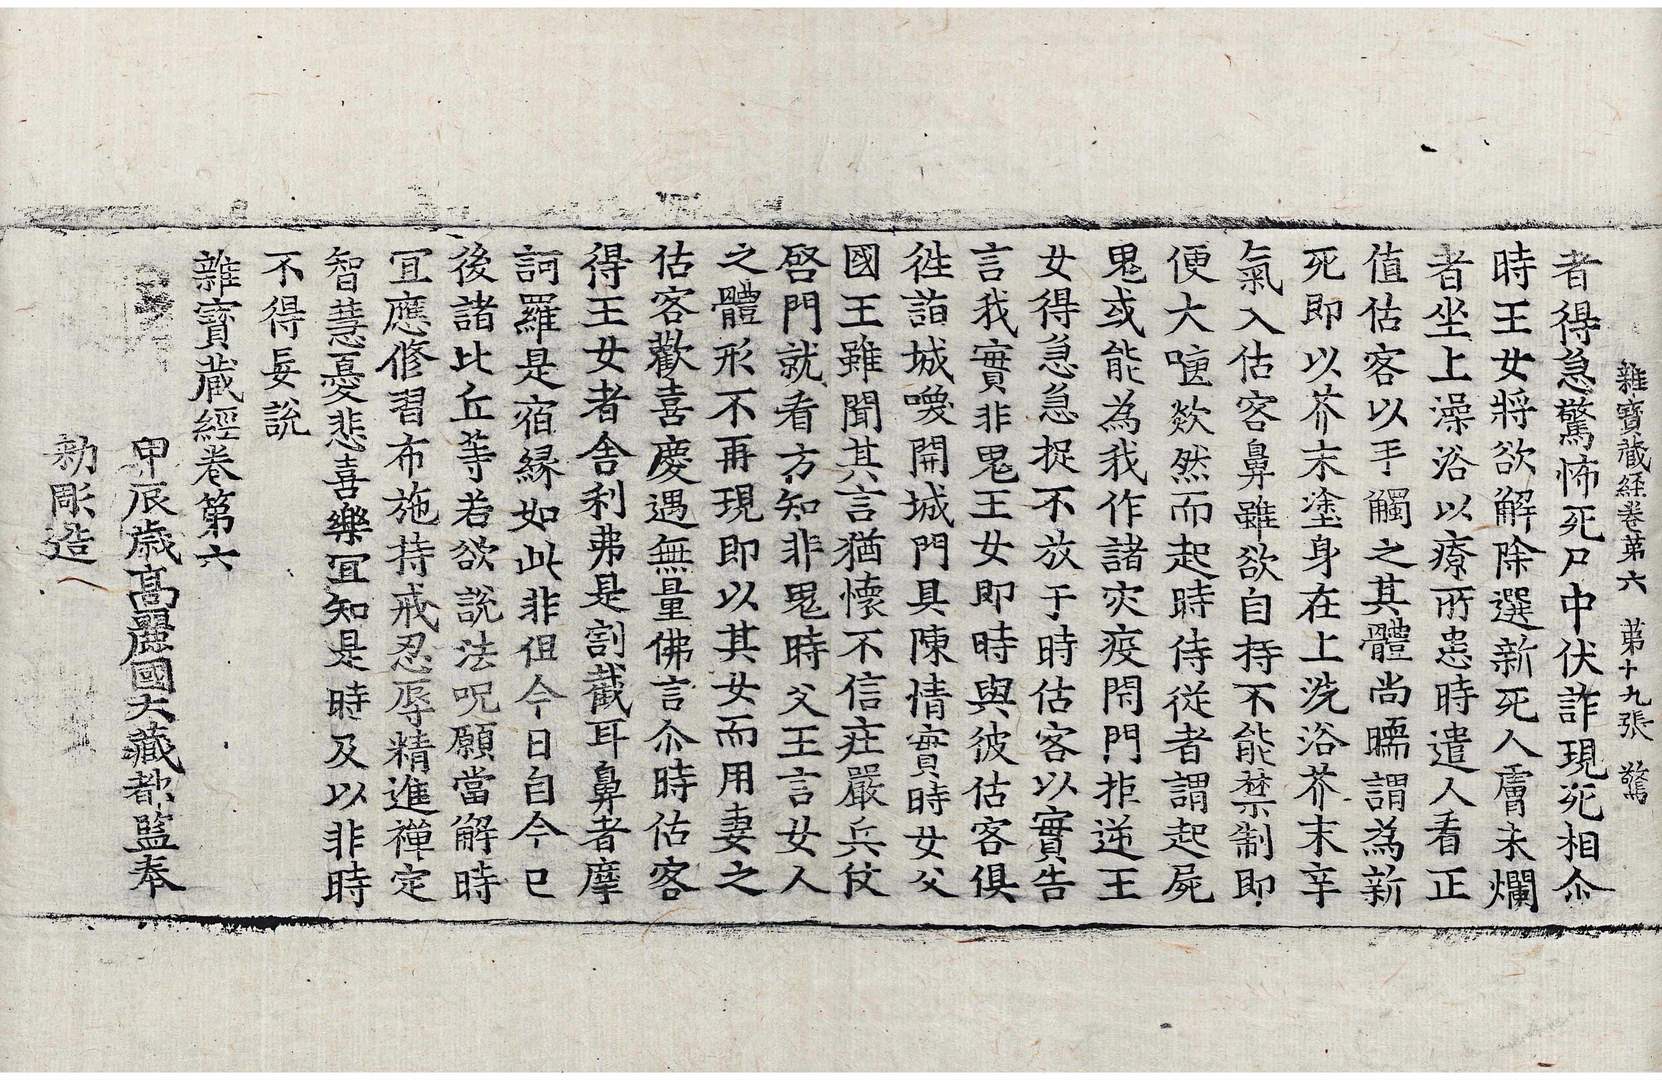 雜寶藏経卷第六　第十九張　驚
者得急驚怖死尸中伏詐現死相尒
時王女將欲解除選新死人膚未爛
者坐上澡浴以療所患時遣人看正
值估客以手觸之其體尚𣎴謂為新
死即以芥末塗身在上洗浴芥末辛
氣入估客鼻雖欲自持不能禁制即
便大嚏欻然而起時侍從者謂起屍
鬼或能為我作諸灾疫閇門拒逆王
女得急急捉不放于時估客以實告
言我實非鬼王女即時與彼估客俱
徃詣城喚開城門具陳情實時女父
國王雖聞其言猶懷不信㽵嚴兵仗
啓門就看方知非鬼時父王言女人
之體形不再現即以其女而用妻之
估客歡喜慶遇無量佛言尒時估客
得王女者舍利弗是割截耳鼻者摩
訶羅是宿縁如此非但今日自今已
後諸比丘等若欲說法呪願當解時
冝應修習布施持戒忍辱精進禪定
智慧憂悲喜樂冝知是時及以非時
不得妄說
雜寶藏經卷第六
甲辰歲髙麗國大藏都監奉
勑彫造